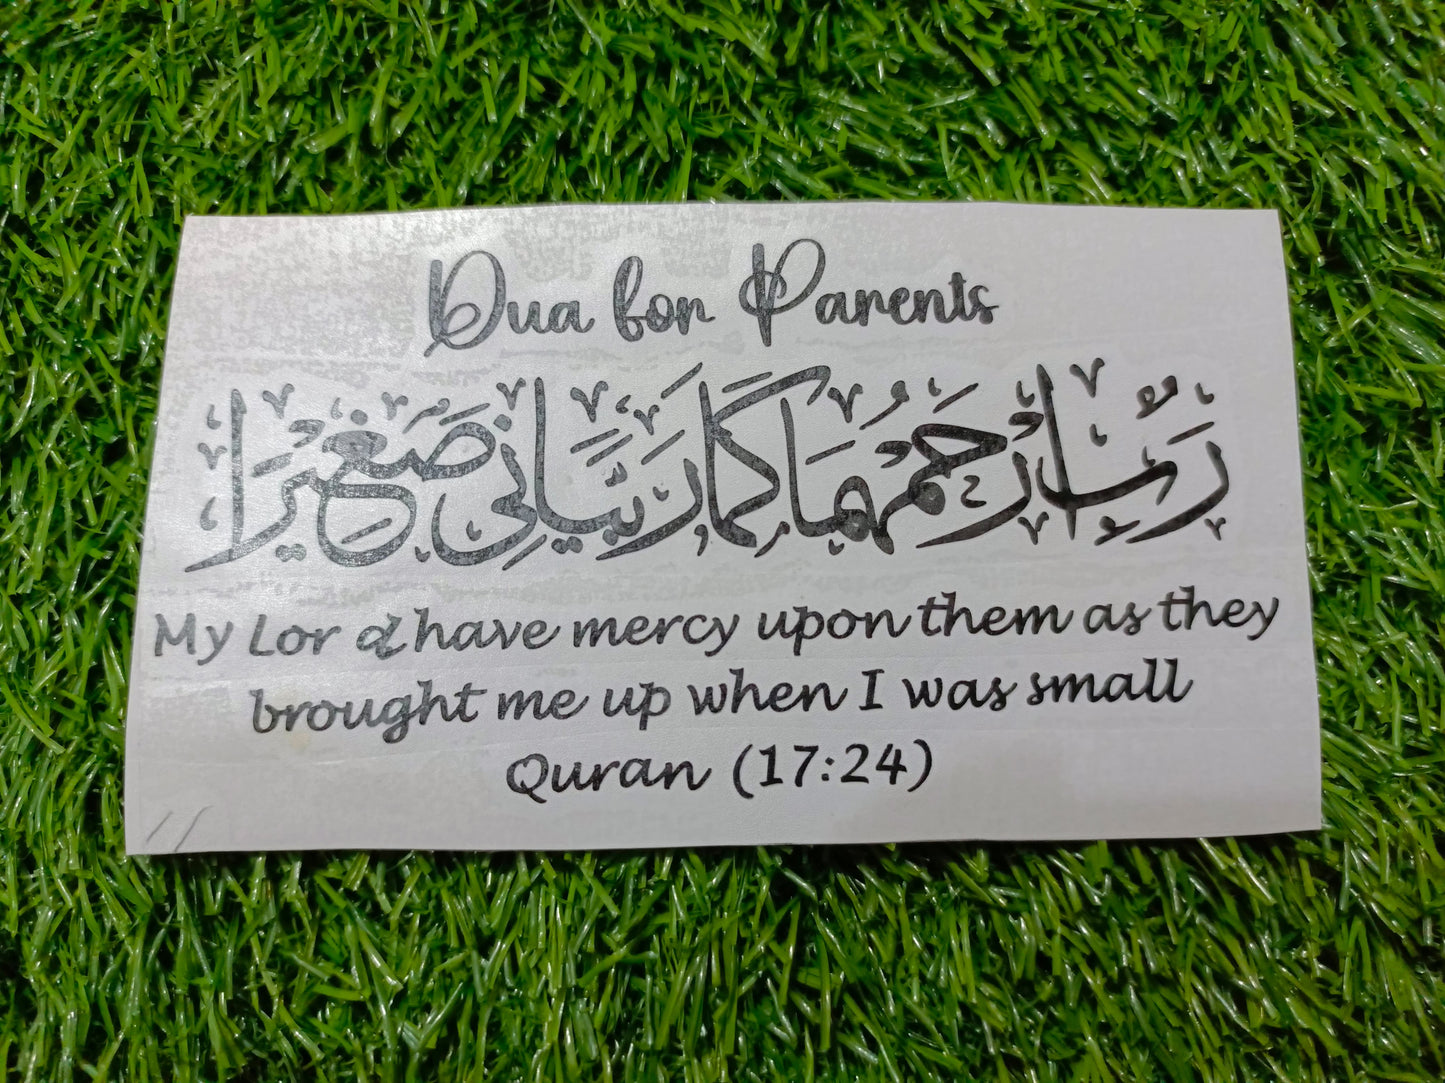 Dua for Parents
رَبِّ ارْحَمْهُمَا كَمَا رَبَّيَانِي صَغِيرًا
My Lor d have mercy upon them as they
brought me up when I was small
Quran (17:24)